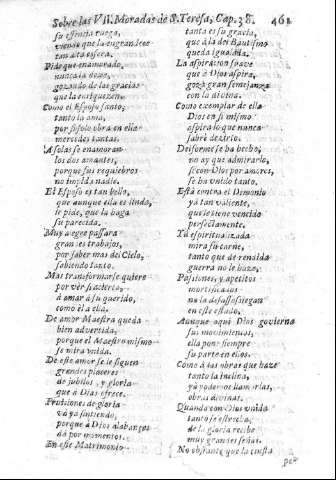 Sobre las VII. Moradas de S. Teresa, Cap. 38. 461
su essencia ruega,
viendo que la engrandece
tan alta essera.
Pide que enamorado,
nunca la dexe,
gozando de las gracias
que la enriquezen.
Como el Esposo santo,
tanto la ama,
por sí solo obra en ella
mercedes tantas.
A solas se enamoran
los dos amantes,
porque sus requiebros
no impida nadie.
El Esposo es tan bello,
que aunque ella es linda,
le pide, que la haga
su parecida.
Muy alegre passara
grandes trabajos,
por saber mas del Cielo,
sabiendo tanto.
Mas transformarse quiere
por ver si acierta,
á amar á su querido,
como él a ella.
De amor Maestra queda
bien advertida,
porque el Maestro mismo
se mira unida.
De este amor se le siguen
grandes placeres
de jubilos, y gloria
que á Dios ofrece.
Provisiones de gloria
vá ya sintiendo,
porque á Dios alabanças
dá por momentos.
En este Matrimonio
tanta es su gracia,
que á la del Bautismo
queda igualada.
La aspiracion suave
que á Dios aspira,
goza gran semejança
con la divina.
Como exemplar de ella
Dios en sí mismo
aspira lo que nunca
sabré dezirlo.
Deiforme se ha hecho,
no ay que admirarlo,
si con Dios por amores,
se ha unido tanto.
Está contra el Demonio
yá tan valiente,
que le tiene vencido
perfectamente.
Yá espiritualizada
mira su carne,
tanto que de rendida
guerra no le haze.
Passiones, y apetitos
mortificados
no la desassossiegan
en este estado.
Aunque aqui Dios govierna
sus movimientos,
ella pone siempre
su parte en ellos.
Como á las obras que haze
tanto la inclina,
yá podemos llamarlas,
obras divinas.
Quando con Dios unida
tanto se estrecha,
de la gloria recibe
muy grandes señas.
No obstante que la cuesta